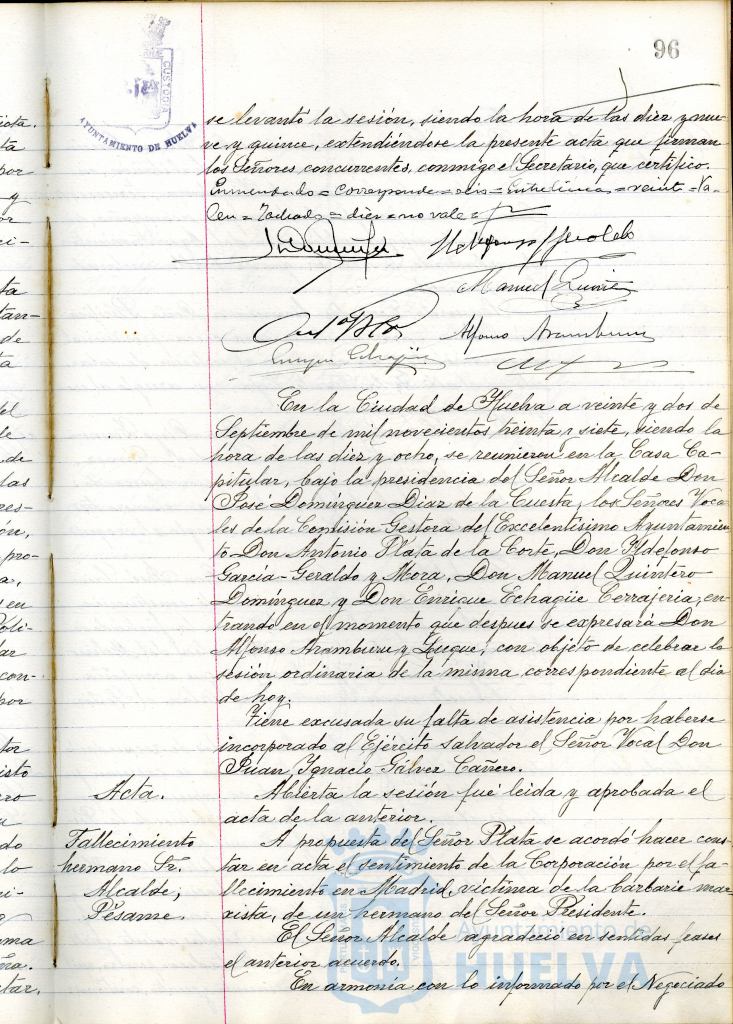 96
CUSTODIA
AYUNTAMIENTO DE HUELVA
se levantó la sesión, siendo la hora de las diez y nue-
ve y quince, extendiéndose la presente acta que firman
los Señores concurrentes, conmigo el Secretario, que certifico.
Enmendado = corresponde = seis = Entre lineas = veinte = Va-
len = Tachado = diez = no vale =
Manuel Quintero
Alfonso Aramburu
Enrique Echagüe
En la Ciudad de Huelva a veinte y dos de
Septiembre de mil novecientos treinta y siete, siendo la
hora de las diez y ocho, se reunieron en la Casa Ca-
pitular, bajo la presidencia del Señor Alcalde Don
José Domínguez Diaz de la Cuesta, los Señores Voca-
les de la Comisión Gestora del Excelentísimo Ayuntamien-
to Don Antonio Plata de la Corte, Don Ildefonso
García-Geraldo y Mora, Don Manuel Quintero
Domínguez y Don Enrique Echagüe Cerrajería, en-
trando en el momento que despues se expresará Don
Alfonso Aramburu y Luque, con objeto de celebrar la
sesión ordinaria de la misma, correspondiente al dia
de hoy.
Tiene excusada su falta de asistencia por haberse
incorporado al Ejército salvador el Señor Vocal Don
Juan Ignacio Gálvez Cañero.
Acta.
Abierta la sesión fué leida y aprobada el
acta de la anterior.
Fallecimiento
hermano Sr.
Alcalde;
Pésame.
A propuesta del Señor Plata se acordó hacer cons-
tar en acta el sentimiento de la Corporación por el fa-
llecimiento en Madrid, victima de la barbarie mar-
xista, de un hermano del Señor Presidente.
El Señor Alcalde agradeció en sentidas frases
el anterior acuerdo.
En armonía con lo informado por el Negociado
Ayuntamiento de
HUELVA